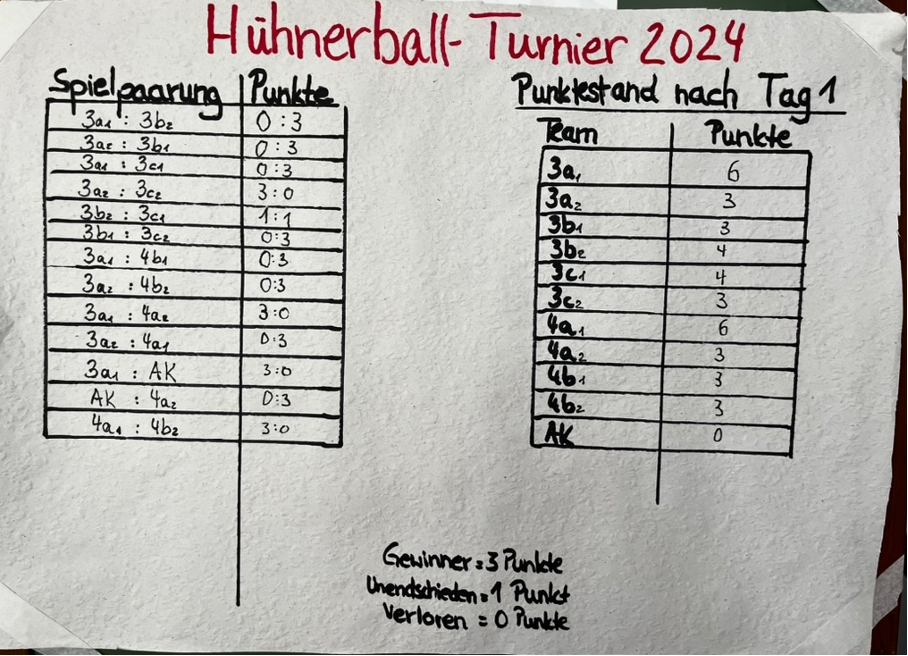 Hühnerball-Turnier 2024
Spielpaarung Punkte
3a1 : 3b2 0:3
3a2 : 3b1 0:3
3a1 : 3c1 0:3
3a2 : 3c2 3:0
3b2 : 3c1 1:1
3b1 : 3c2 0:3
3a1 : 4b1 0:3
3a2 : 4b2 0:3
3a1 : 4a2 3:0
3a2 : 4a1 0:3
3a1 : AK 3:0
AK : 4a2 0:3
4a1 : 4b2 3:0
Punktestand nach Tag 1
Team Punkte
3a1 6
3a2 3
3b1 3
3b2 4
3c1 4
3c2 3
4a1 6
4a2 3
4b1 3
4b2 3
AK 0
Gewinner = 3 Punkte
Unendschieden = 1 Punkt
Verloren = 0 Punkte